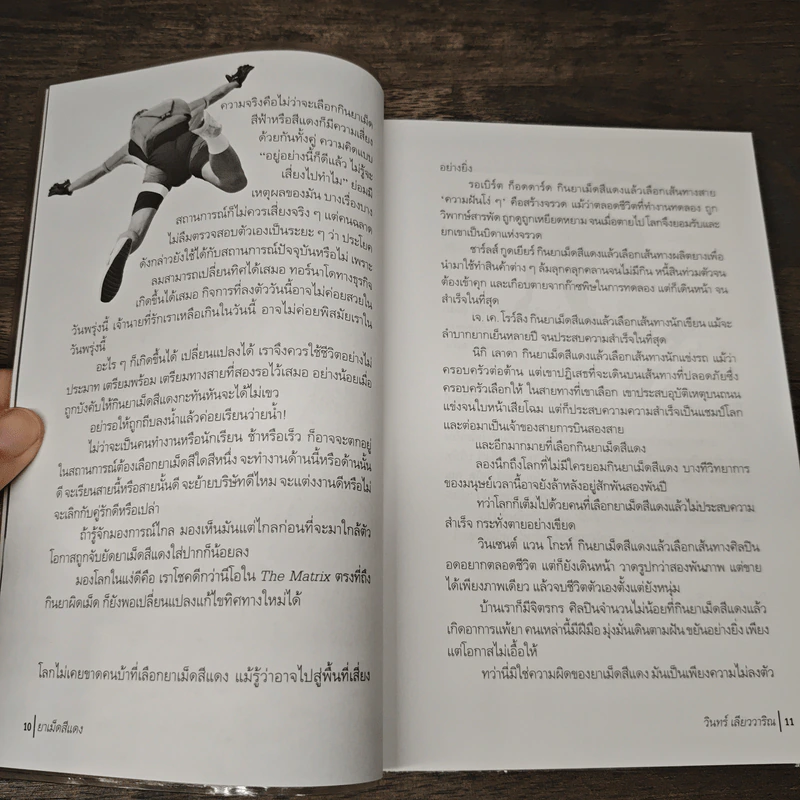 ความจริงคือไม่ว่าจะเลือกกินยาเม็ด
สีฟ้าหรือสีแดงก็มีความเสี่ยง
ด้วยกันทั้งคู่ ความคิดแบบ
“อยู่อย่างนี้ก็ดีแล้ว ไม่รู้จะ
เสี่ยงไปทำไม” ย่อมมี
เหตุผลของมัน บางเรื่องบาง
สถานการณ์ก็ไม่ควรเสี่ยงจริง ๆ แต่คนฉลาด
ไม่ลืมตรวจสอบตัวเองเป็นระยะ ๆ ว่า ประโยค
ดังกล่าวยังใช้ได้กับสถานการณ์ปัจจุบันหรือไม่ เพราะ
ลมสามารถเปลี่ยนทิศได้เสมอ ทอร์นาโดทางธุรกิจ
เกิดขึ้นได้เสมอ กิจการที่ลงตัววันนี้อาจไม่ค่อยสวยใน
วันพรุ่งนี้ เจ้านายที่รักเราเหลือเกินในวันนี้ อาจไม่ค่อยพิสมัยเราใน
วันพรุ่งนี้
อะไร ๆ ก็เกิดขึ้นได้ เปลี่ยนแปลงได้ เราจึงควรใช้ชีวิตอย่างไม่
ประมาท เตรียมพร้อม เตรียมทางสายที่สองรอไว้เสมอ อย่างน้อยเมื่อ
ถูกบังคับให้กินยาเม็ดสีแดงกะทันหันจะได้ไม่เขว
อย่ารอให้ถูกถีบลงน้ำแล้วค่อยเรียนว่ายน้ำ!
ไม่ว่าจะเป็นคนทำงานหรือนักเรียน ช้าหรือเร็ว ก็อาจจะตกอยู่
ในสถานการณ์ต้องเลือกยาเม็ดสีใดสีหนึ่ง จะทำงานด้านนี้หรือด้านนั้น
ดี จะเรียนสายนี้หรือสายนั้นดี จะย้ายบริษัทดีไหม จะแต่งงานดีหรือไม่
จะเลิกกับคู่รักดีหรือเปล่า
ถ้ารู้จักมองการณ์ไกล มองเห็นมันแต่ไกลก่อนที่จะมาใกล้ตัว
โอกาสถูกจับยัดยาเม็ดสีแดงใส่ปากก็น้อยลง
มองโลกในแง่ดีคือ เราโชคดีกว่านีโอใน The Matrix ตรงที่ถึง
กินยาผิดเม็ด ก็ยังพอเปลี่ยนแปลงแก้ไขทิศทางใหม่ได้
โลกไม่เคยขาดคนบ้าที่เลือกยาเม็ดสีแดง แม้รู้ว่าอาจไปสู่พื้นที่เสี่ยง
10 ยาเม็ดสีแดง
อย่างยิ่ง
รอเบิร์ต ก็อดดาร์ด กินยาเม็ดสีแดงแล้วเลือกเส้นทางสาย
“ความฝันโง่ ๆ” คือสร้างจรวด แม้ว่าตลอดชีวิตที่ทำงานทดลอง ถูก
วิพากษ์สารพัด ถูกดูถูกเหยียดหยาม จนเมื่อตายไป โลกจึงยอมรับและ
ยกเขาเป็นบิดาแห่งจรวด
ชาร์ลส์ กูดเยียร์ กินยาเม็ดสีแดงแล้วเลือกเส้นทางผลิตยางเพื่อ
นำมาใช้ทำสินค้าต่าง ๆ ล้มลุกคลุกคลานจนไม่มีกิน หนี้สินท่วมตัวจน
ต้องเข้าคุก และเกือบตายจากก๊าซพิษในการทดลอง แต่ก็เดินหน้า จน
สำเร็จในที่สุด
เจ. เค. โรว์ลิง กินยาเม็ดสีแดงแล้วเลือกเส้นทางนักเขียน แม้จะ
ลำบากยากเย็นหลายปี จนประสบความสำเร็จในที่สุด
นิกิ เลาดา กินยาเม็ดสีแดงแล้วเลือกเส้นทางนักแข่งรถ แม้ว่า
ครอบครัวต่อต้าน แต่เขาปฏิเสธที่จะเดินบนเส้นทางที่ปลอดภัยซึ่ง
ครอบครัวเลือกให้ ในสายทางที่เขาเลือก เขาประสบอุบัติเหตุบนถนน
แข่งจนใบหน้าเสียโฉม แต่ก็ประสบความความสำเร็จเป็นแชมป์โลก
และต่อมาเป็นเจ้าของสายการบินสองสาย
และอีกมากมายที่เลือกกินยาเม็ดสีแดง
ลองนึกถึงโลกที่ไม่มีใครยอมกินยาเม็ดสีแดง บางทีวิทยาการ
ของมนุษย์เวลานี้อาจยังล้าหลังอยู่สักพันสองพันปี
ทว่าโลกก็เต็มไปด้วยคนที่เลือกยาเม็ดสีแดงแล้วไม่ประสบความ
สำเร็จ กระทั่งตายอย่างเขียด
วินเซนต์ แวน โกะห์ กินยาเม็ดสีแดงแล้วเลือกเส้นทางศิลปิน
อดอยากตลอดชีวิต แต่ก็ยังเดินหน้า วาดรูปกว่าสองพันภาพ แต่ขาย
ได้เพียงภาพเดียว แล้วจบชีวิตตัวเองตั้งแต่ยังหนุ่ม
บ้านเราก็มีจิตรกร ศิลปินจำนวนไม่น้อยที่กินยาเม็ดสีแดงแล้ว
เกิดอาการแพ้ยา คนเหล่านี้มีฝีมือ มุ่งมั่นเดินตามฝัน ขยันอย่างยิ่ง เพียง
แต่โอกาสไม่เอื้อให้
ทว่านี่มิใช่ความผิดของยาเม็ดสีแดง มันเป็นเพียงความไม่ลงตัว
วินทร์ เลียววาริณ 11